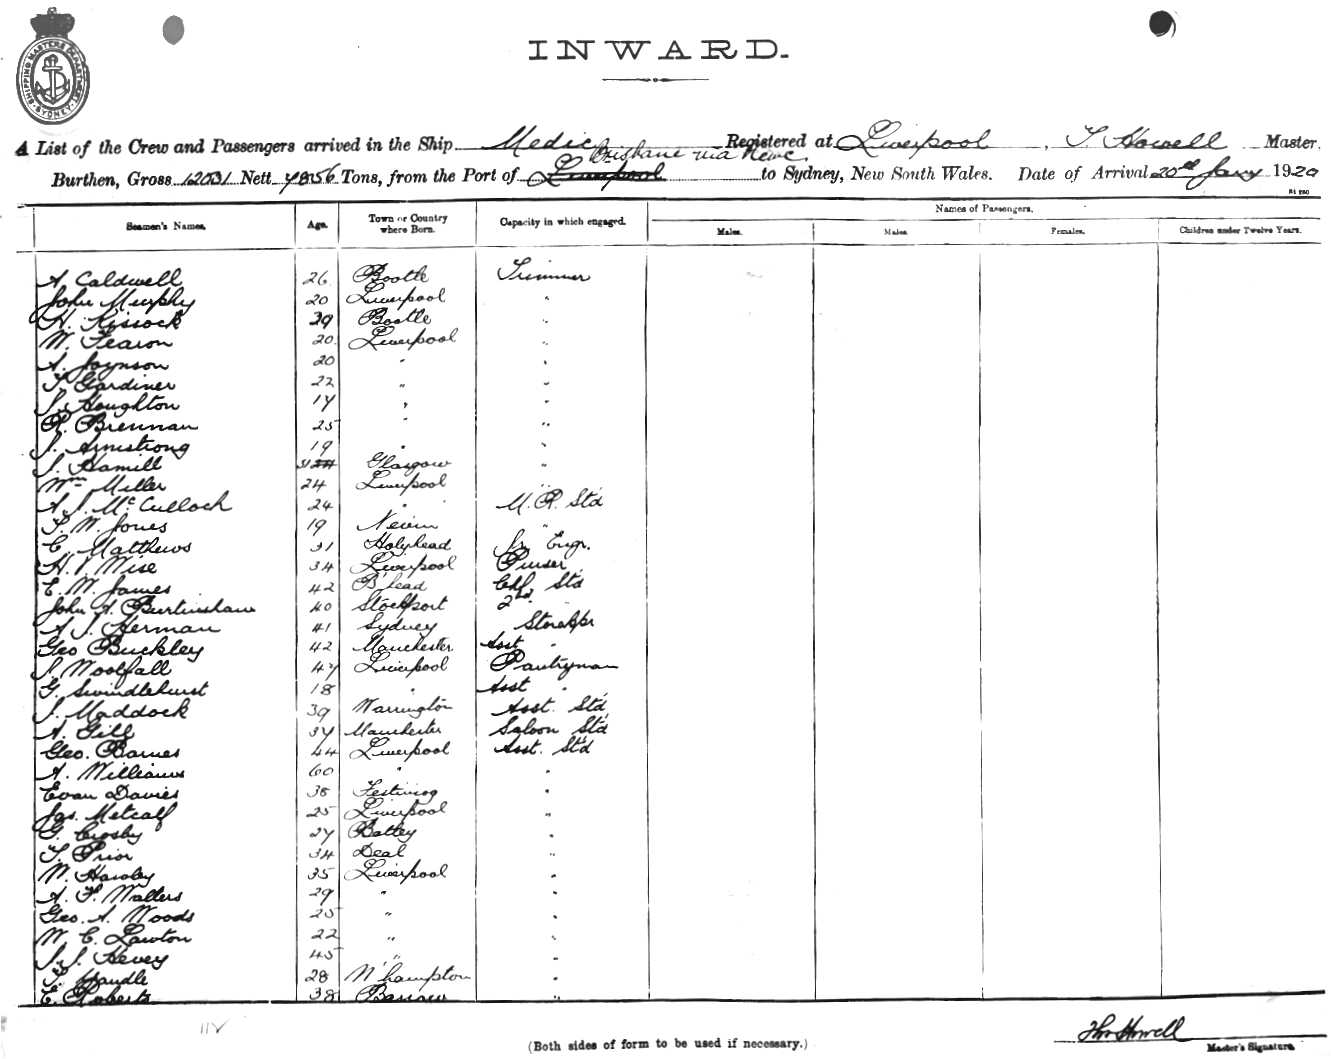 SHIPPING MASTERS DEPARTMENT SYDNEY
INWARD.
A List of the Crew and Passengers arrived in the Ship Medic Registered at Liverpool, T Howell Master.
Brisbane via Newc.
Burthen, Gross 12031 Nett 7856 Tons, from the Port of Liverpool to Sydney, New South Wales. Date of Arrival 20th Jany 1920
Names of Passengers.
Seamen's Names. Age. Town or Country where Born. Capacity in which engaged. Males. Males Females. Children under Twelve Years.
A. Caldwell 26 Bootle Trimmer
John Murphy 20 Liverpool "
H. Kissock 29 Bootle "
W. Fearon 20 Liverpool "
A. Joynson 20 " "
T. Gardiner 22 " "
J. Houghton 17 " "
P. Brennan 25 " "
J. Armstrong 19 " "
J. Hamill 51 Glasgow "
Wm Miller 24 Liverpool "
A. J. McCulloch 24 " U. P. Std
T. W. Jones 19 Nevin "
C. Matthews 31 Holyhead Jr Engr.
H. V. Wise 34 Liverpool Purser
E. W. James 42 B'head Chf Std
John A. Burtinshaw 40 Stockport 2nd "
A. J. Herman 41 Sydney Storekpr
Geo Buckley 42 Manchester Asst "
J. Woolfall 47 Liverpool Pantryman
G. Swindlehurst 18 " Asst "
J. Maddock 39 Warrington Asst. Std
A. Gill 37 Manchester Saloon Std
Geo. Barnes 44 Liverpool Asst. Std
A. Williams 60 " "
Evan Davies 38 Festiniog "
Jas. Metcalf 25 Liverpool "
G. Crosby 27 Batley "
T. Prior 34 Deal "
W. Hawley 35 Liverpool "
A. F. Walters 29 " "
Geo. A. Woods 25 " "
W. C. Lawton 22 " "
J. J. Hevey 45 " "
T. Handle 28 N'hampton "
E. Roberts 38 Barrow "
Thos Howell
Master's Signature.
(Both sides of form to be used if necessary.)